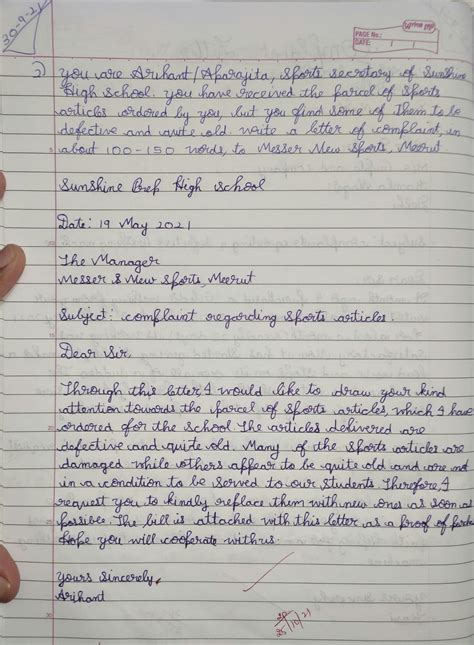 30-9-21
PAGE No.:
DATE:
2) You are Arihant/Aparajita, sports secretary of Sunshine
High School. you have received the parcel of sports
articles ordered by you, but you find some of them to be
defective and quite old. write a letter of complaint, in
about 100-150 words, to Messer New Sports, Meerut
Sunshine Prep High School
Date: 19 May 2021
The Manager
Messer & New Sports, Meerut
Subject: complaint regarding sports articles.
Dear Sir,
Through this letter, I would like to draw your kind
attention towards the parcel of sports articles, which I have
ordered for the school The articles delivered are
defective and quite old. Many of the sports articles are
damaged while others appear to be quite old and are not
in a condition to be served to our students Therefore, I
request you to kindly replace them with new ones as soon as
possible. The bill is attached with this letter as a proof of
Hope you will cooperate with us.
Yours Sincerely,
Arihant
25/10/21